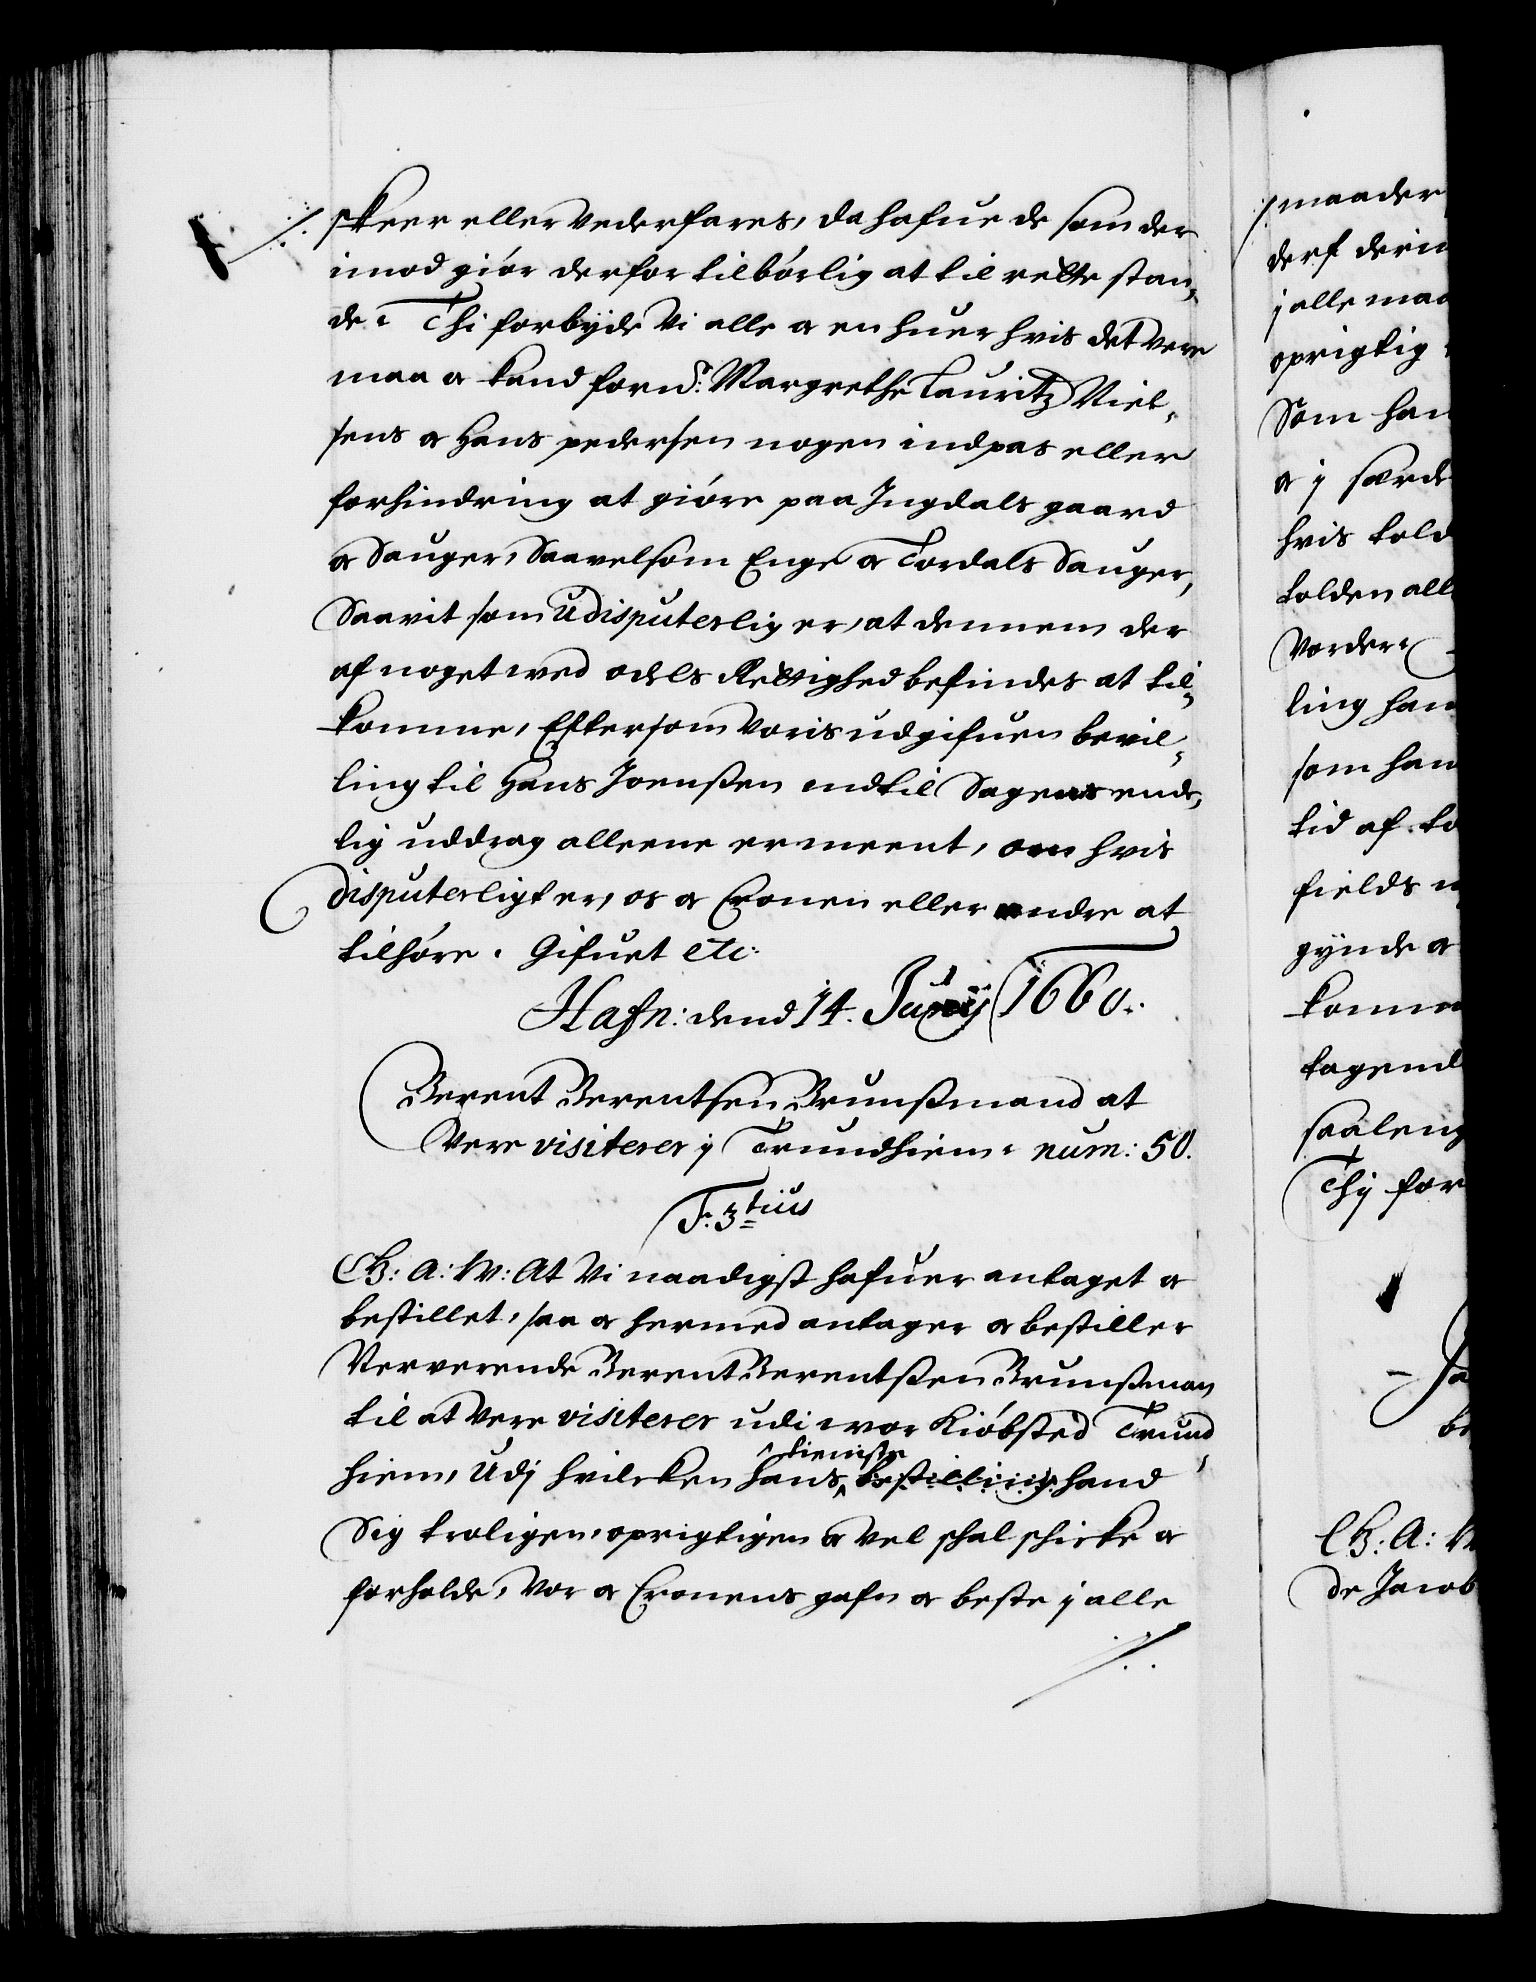 skeer eller vederfares, da hafue de som der
imod giør derfor tilbørlig at til rette stan,
de. Thi forbyde Vi alle oc en huer hvis det vere
maa oc kand fornd: Margrethe Lauritz Niel,
sens oc Hans pedersen nogen indpas eller
forhindring at giøre paa Ingdals gaard
oc Sauger, Saavelsom Enge oc Tordals Sauger,
Saavit som Udisputerlig er, at dennem der
af noget med odels Rettighed befindes at til,
komme, Eftersom voris udgifuen bevil,
ling til Hans Joenssen indtil Sagens ende,
lig uddrag alleene er meent, om hvis
disputerligt er, os oc Cronen eller andre at
tilhøre. Gifuet etc:
Hafn: dend 14. Junij 1660.
Berent Berentsen Brunssmand at
Vere visiterer j Trundhiem. num: 50.
F. 3tius
G: A: W: At Vi naadigst hafuer antaget oc
bestillet, saa oc hermed antager oc bestiller
Nerverende Berent Berentssen Brunssman
til at Vere visiterer udi vor Kiøbsted Trund,
tieniste
hiem, Udj hvilcken hans bestilling hand
Sig troligen, oprigtigen oc vel schal schicke oc
forholde, Vor oc Cronens gafn oc beste j alle
maader
j alle maa
oprigtig
Som han
oc j
hvis told
tolden all
Vorder.
ling han
som han
tid af to
fields
gynde oc
komm
tagend
saaleng
Thj for
Ja
be
G: A: W
de Jacob